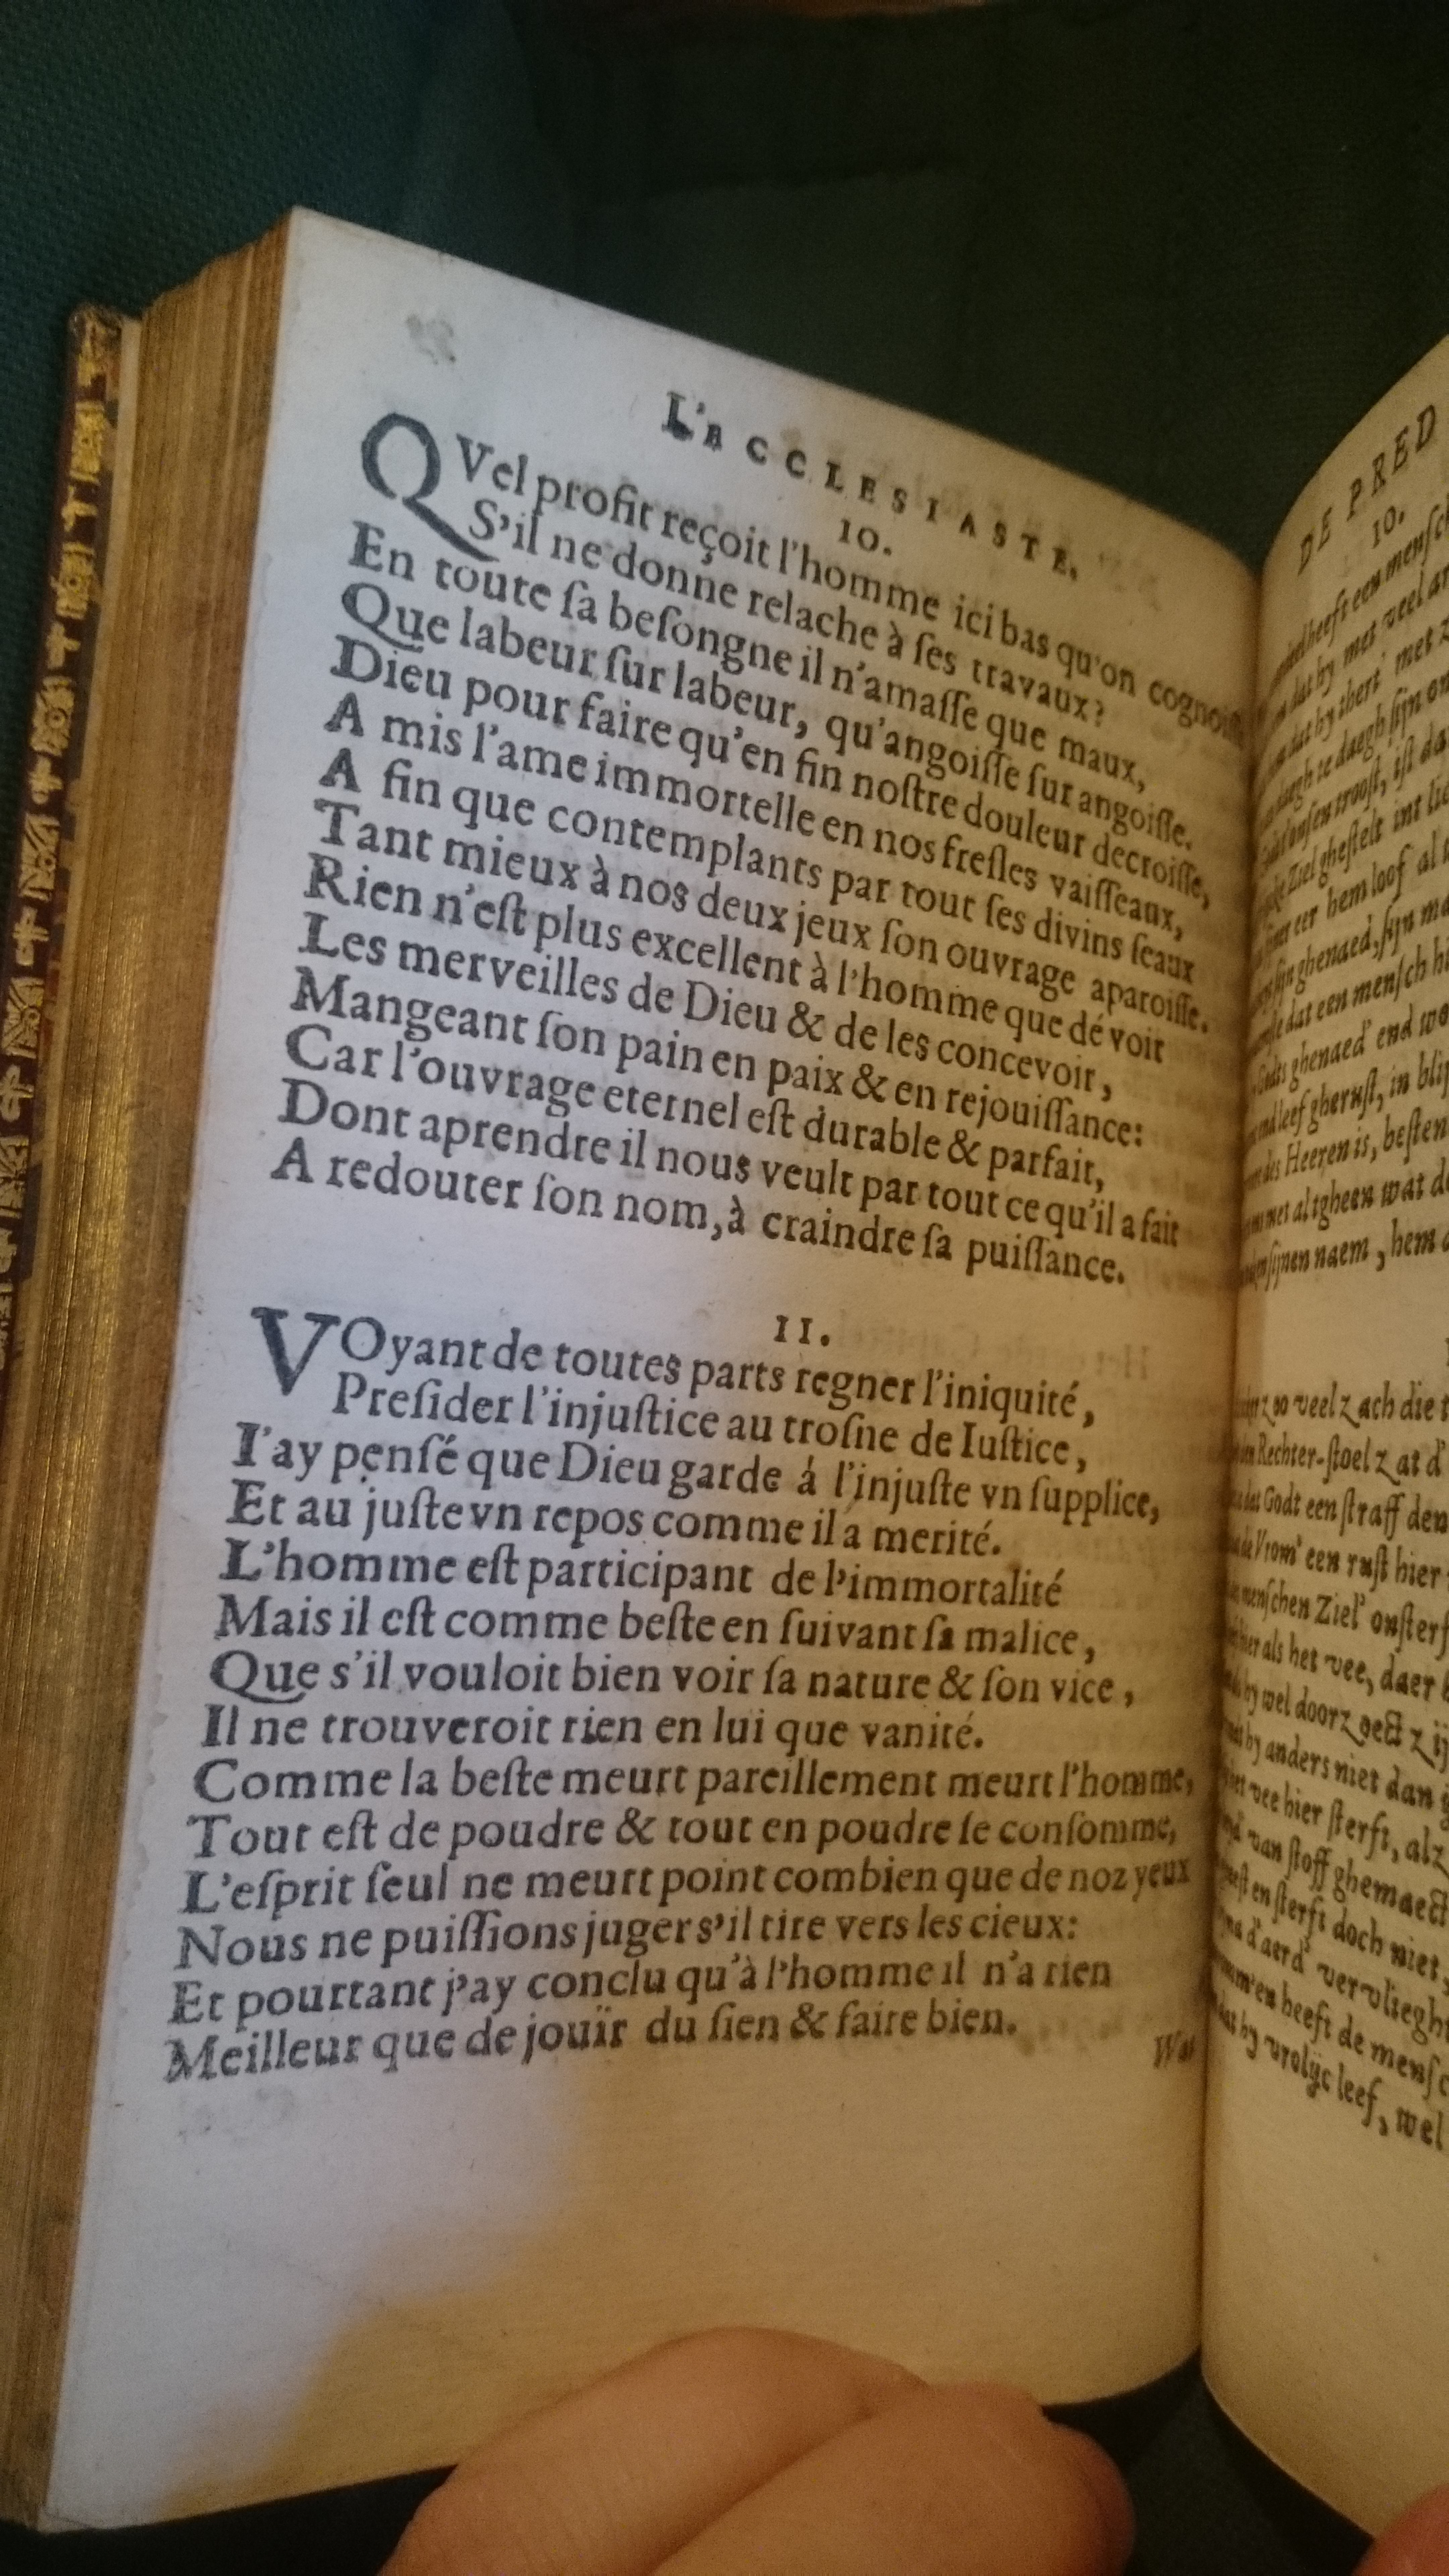 L'ECCLESIASTE.
10.
QVel profit reçoit l'homme ici bas qu'on
S'il ne donne relache à ſes travaux?
En toute ſa beſongne il n'amaſſe que maux,
Que labeur ſur labeur, qu'angoiſſe ſur angoiſſe.
Dieu pour faire qu'en fin noſtre douleur decroiſſe,
A mis l'ame immortelle en nos freſles vaiſſeaux,
A fin que contemplants par tout ſes divins ſeaux
Tant mieux à nos deux jeux ſon ouvrage aparoiſſe.
Rien n'eſt plus excellent à l'homme que dé voir
Les merveilles de Dieu & de les concevoir,
Mangeant ſon pain en paix & en rejouiſſance:
Car l'ouvrage eternel eſt durable & parfait,
Dont aprendre il nous veult par tout ce qu'il a fait
A redouter ſon nom, à craindre ſa puiſſance.
11.
VOyant de toutes parts regner l'iniquité,
Preſider l'injuſtice au troſne de Iuſtice,
I'ay penſé que Dieu garde á l'injuſte vn ſupplice,
Et au juſte vn repos comme il a merité.
L'homme eſt participant de l'immortalité
Mais il eſt comme beſte en ſuivant ſa malice,
Que s'il vouloit bien voir ſa nature & ſon vice,
Il ne trouveroit rien en lui que vanité.
Comme la beſte meurt pareillement meurt l'homme,
Tout eſt de poudre & tout en poudre ſe conſomme,
L'eſprit ſeul ne meurt point combien que de noz yeux
Nous ne puiſſions juger s'il tire vers les cieux:
Et pourtant j'ay conclu qu'à l'homme il n'a rien
Meilleur que de jouïr du ſien & faire bien.
DE PRED
10.
heeft een
dat hy met veel
dat hy met
troost, iſt
Ziel gheſtelt int
eer hem loof al
ghenaed, ſijn
dat een menſch
ghenaed' end
leef gheruſt, in
des Heeren is,
met al tgheen wat
ſijnen naem, hem
zoo veel zach die
Rechter-ſtoel zat d'
Godt een ſtraff den
een ruſt hier
menſchen Ziel'
als het vee, daer
wel doorzoeckt
hy anders niet dan
vee hier ſterft,
van ſtoff ghemaect
en ſterft doch niet
d'aerd' vervlieght
heeft de
hy vrolijc leef, wel